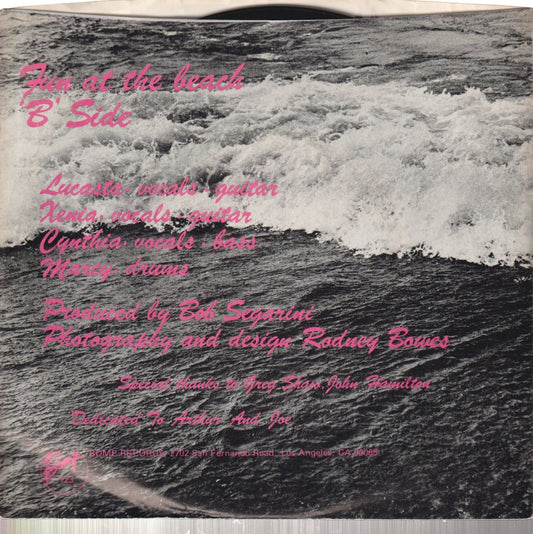 Fun at the beach
'B' Side
Lucasta, vocals, guitar
Xenia, vocals, guitar
Cynthia, vocals, bass
Marcy, drums
Produced by Bob Segarini
Photography and design Rodney Bowes
Special thanks to Greg Shaw, John Hamilton
Dedicated To Arthur And Joe
BOMP RECORDS, 2702 San Fernando Road, Los Angeles, CA 90065